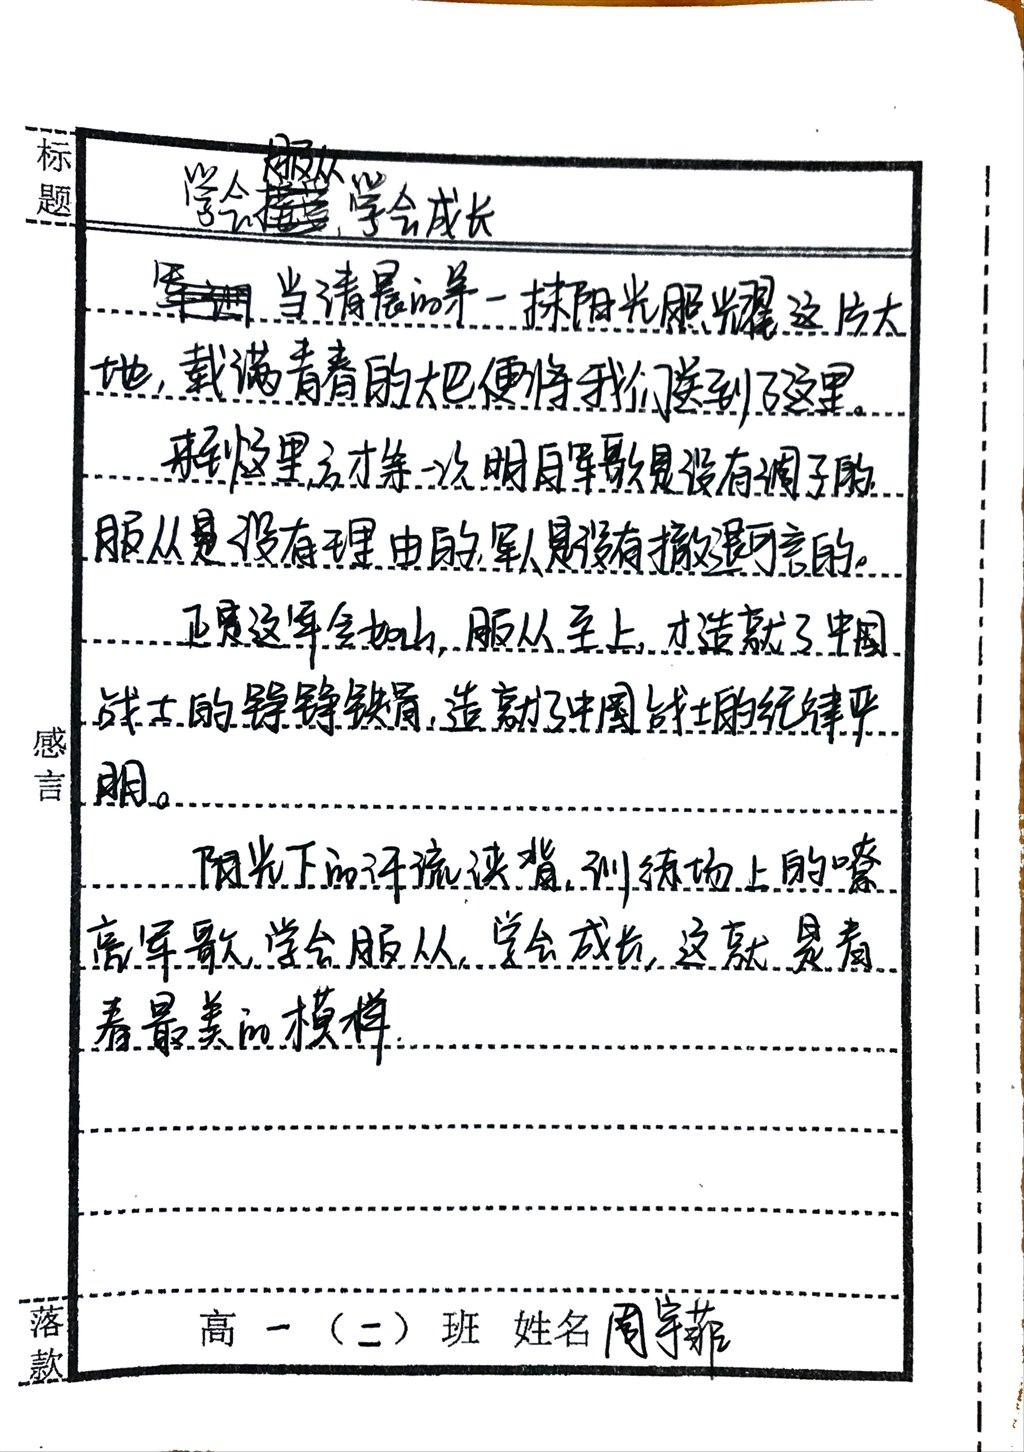 标题
学会服从,学会成长
当清晨的第一抹阳光照耀这片大
地,载满青春的大巴便将我们送到了这里。
来到这里,方才第一次明白军歌是没有调子的,
服从是没有理由的,军人是没有撤退可言的。
正是这军令如山,服从至上,才造就了中国
战士的铮铮铁骨,造就了中国战士的纪律严
明。
感言
阳光下的汗流浃背,训练场上的嘹
亮军歌,学会服从,学会成长,这就是青
春最美的模样.
落款
高一(二)班 姓名周宇菲